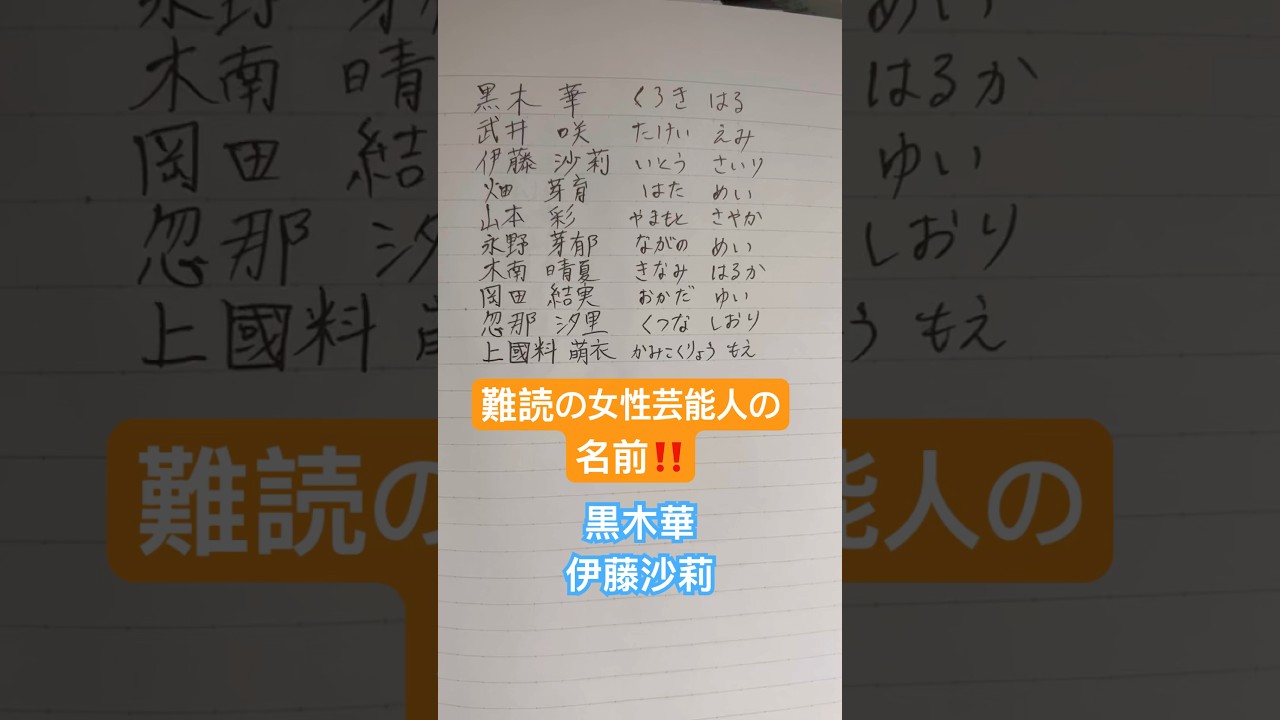 黒木 華 くろき はる
武井 咲 たけい えみ
伊藤 沙莉 いとう さいり
畑 芽育 はた めい
山本 彩 やまもと さやか
永野 芽郁 ながの めい
木南 晴夏 きなみ はるか
岡田 結実 おかだ ゆい
忽那 汐里 くつな しおり
上國料 萌衣 かみこくりょう もえ
難読の女性芸能人の
名前‼️
黒木華
伊藤沙莉